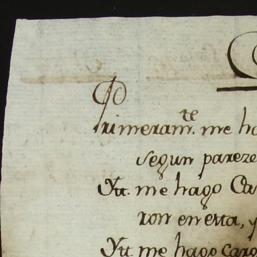 Primeram.te me ha
segun pareze
Ytt. me hago Ca
ron en esta, y
Ytt. me hago Carg